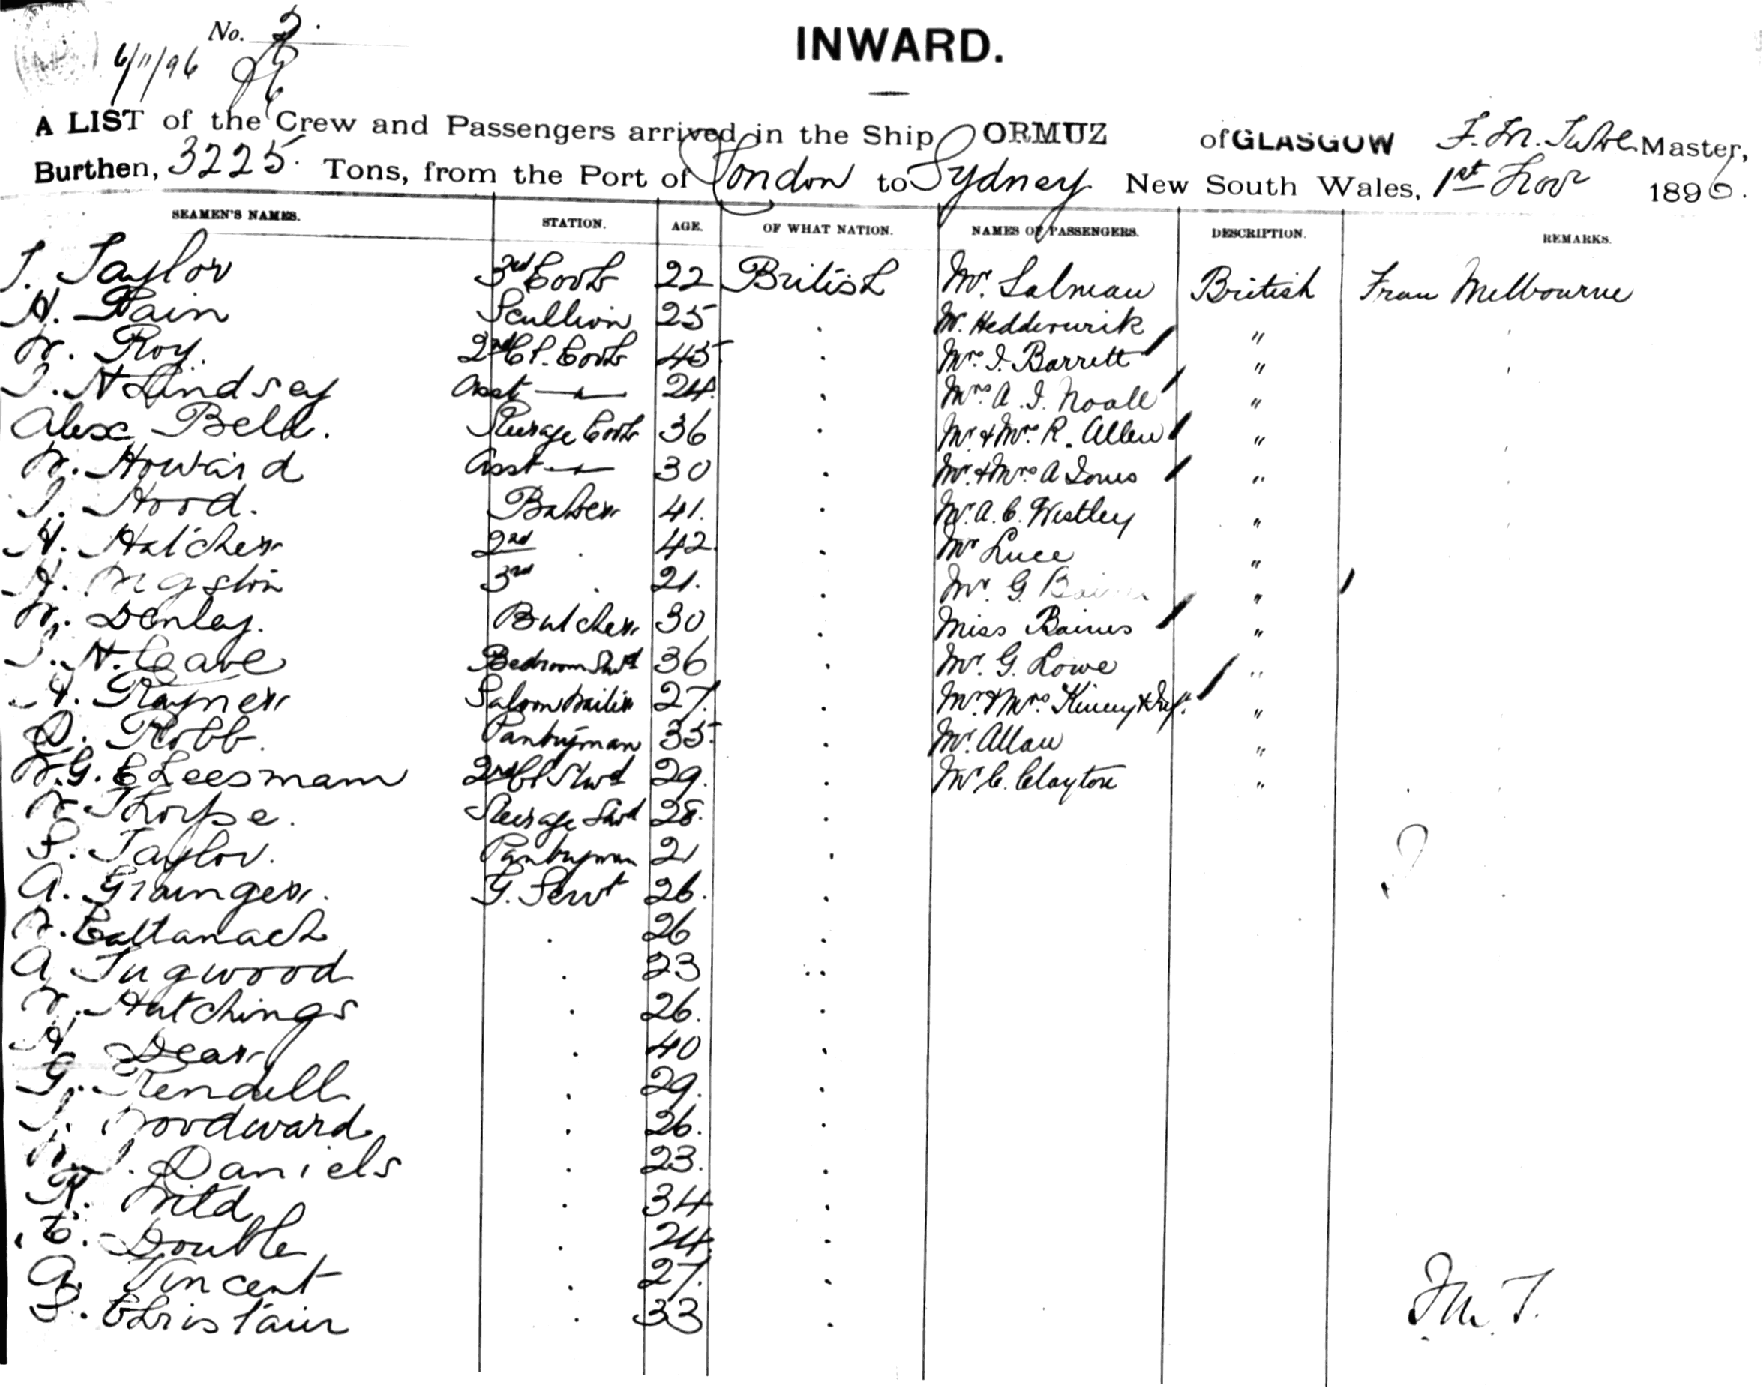 No. 2.
6/11/96
INWARD.
A LIST of the Crew and Passengers arrived in the Ship ORMUZ of GLASGOW F. M. Tuke Master,
Burthen, 3225 Tons, from the Port of London to Sydney New South Wales, 1st Nov 1896.
SEAMEN'S NAMES. STATION. AGE. OF WHAT NATION. NAMES OF PASSENGERS. DESCRIPTION. REMARKS.
T. Taylor 3rd Cook 22 British Mr. Salman British From Melbourne
H. Pain Scullion 25 . Mr. Hedderwick "
W. Roy. 2nd Cl. Cook 45 . Mrs. I. Barrett "
T. H Lindsey Asst — " — 24 . Mrs A. I. Noall "
Alex Bell. Steerage Cook 36 . Mr. & Mrs. R. Allen "
W. Howard Asst — " — 30 . Mr. & Mrs A Jones "
T. Hood. Baker 41. . Mr. A. C. Westley "
H. Hatcher 2nd . 42 . Mr Luce "
3rd . 21. . Mr. G. Baines "
W. Denley. Butcher 30 . Miss Baines "
Cave Bedroom Stwd 36 . Mr. G. Lowe "
Rayner Saloon Waiter 27. . Mr. & Mrs Kiney & Inf. "
D. Robb. Pantryman 35. . Mr. Allan "
W. G. E Leesmann 2nd Cl Stwd 29. . Mr C. Clayton "
W. Thorpe. Steerage Stwd 28. .
P. Taylor. Pantryman 21 .
A. Grainger. G. Servt 26. .
Cattanach . 26 .
A Tugwood . 23 . .
W. Hutchings . 26. .
H. Dear . 40 .
G. Kendell . 29. .
Woodward . 26. .
Daniels . 23. .
R. Wild . 34 .
C. Double . 24. .
A. Vincent . 27. .
Christain . 33 .
F M. T.